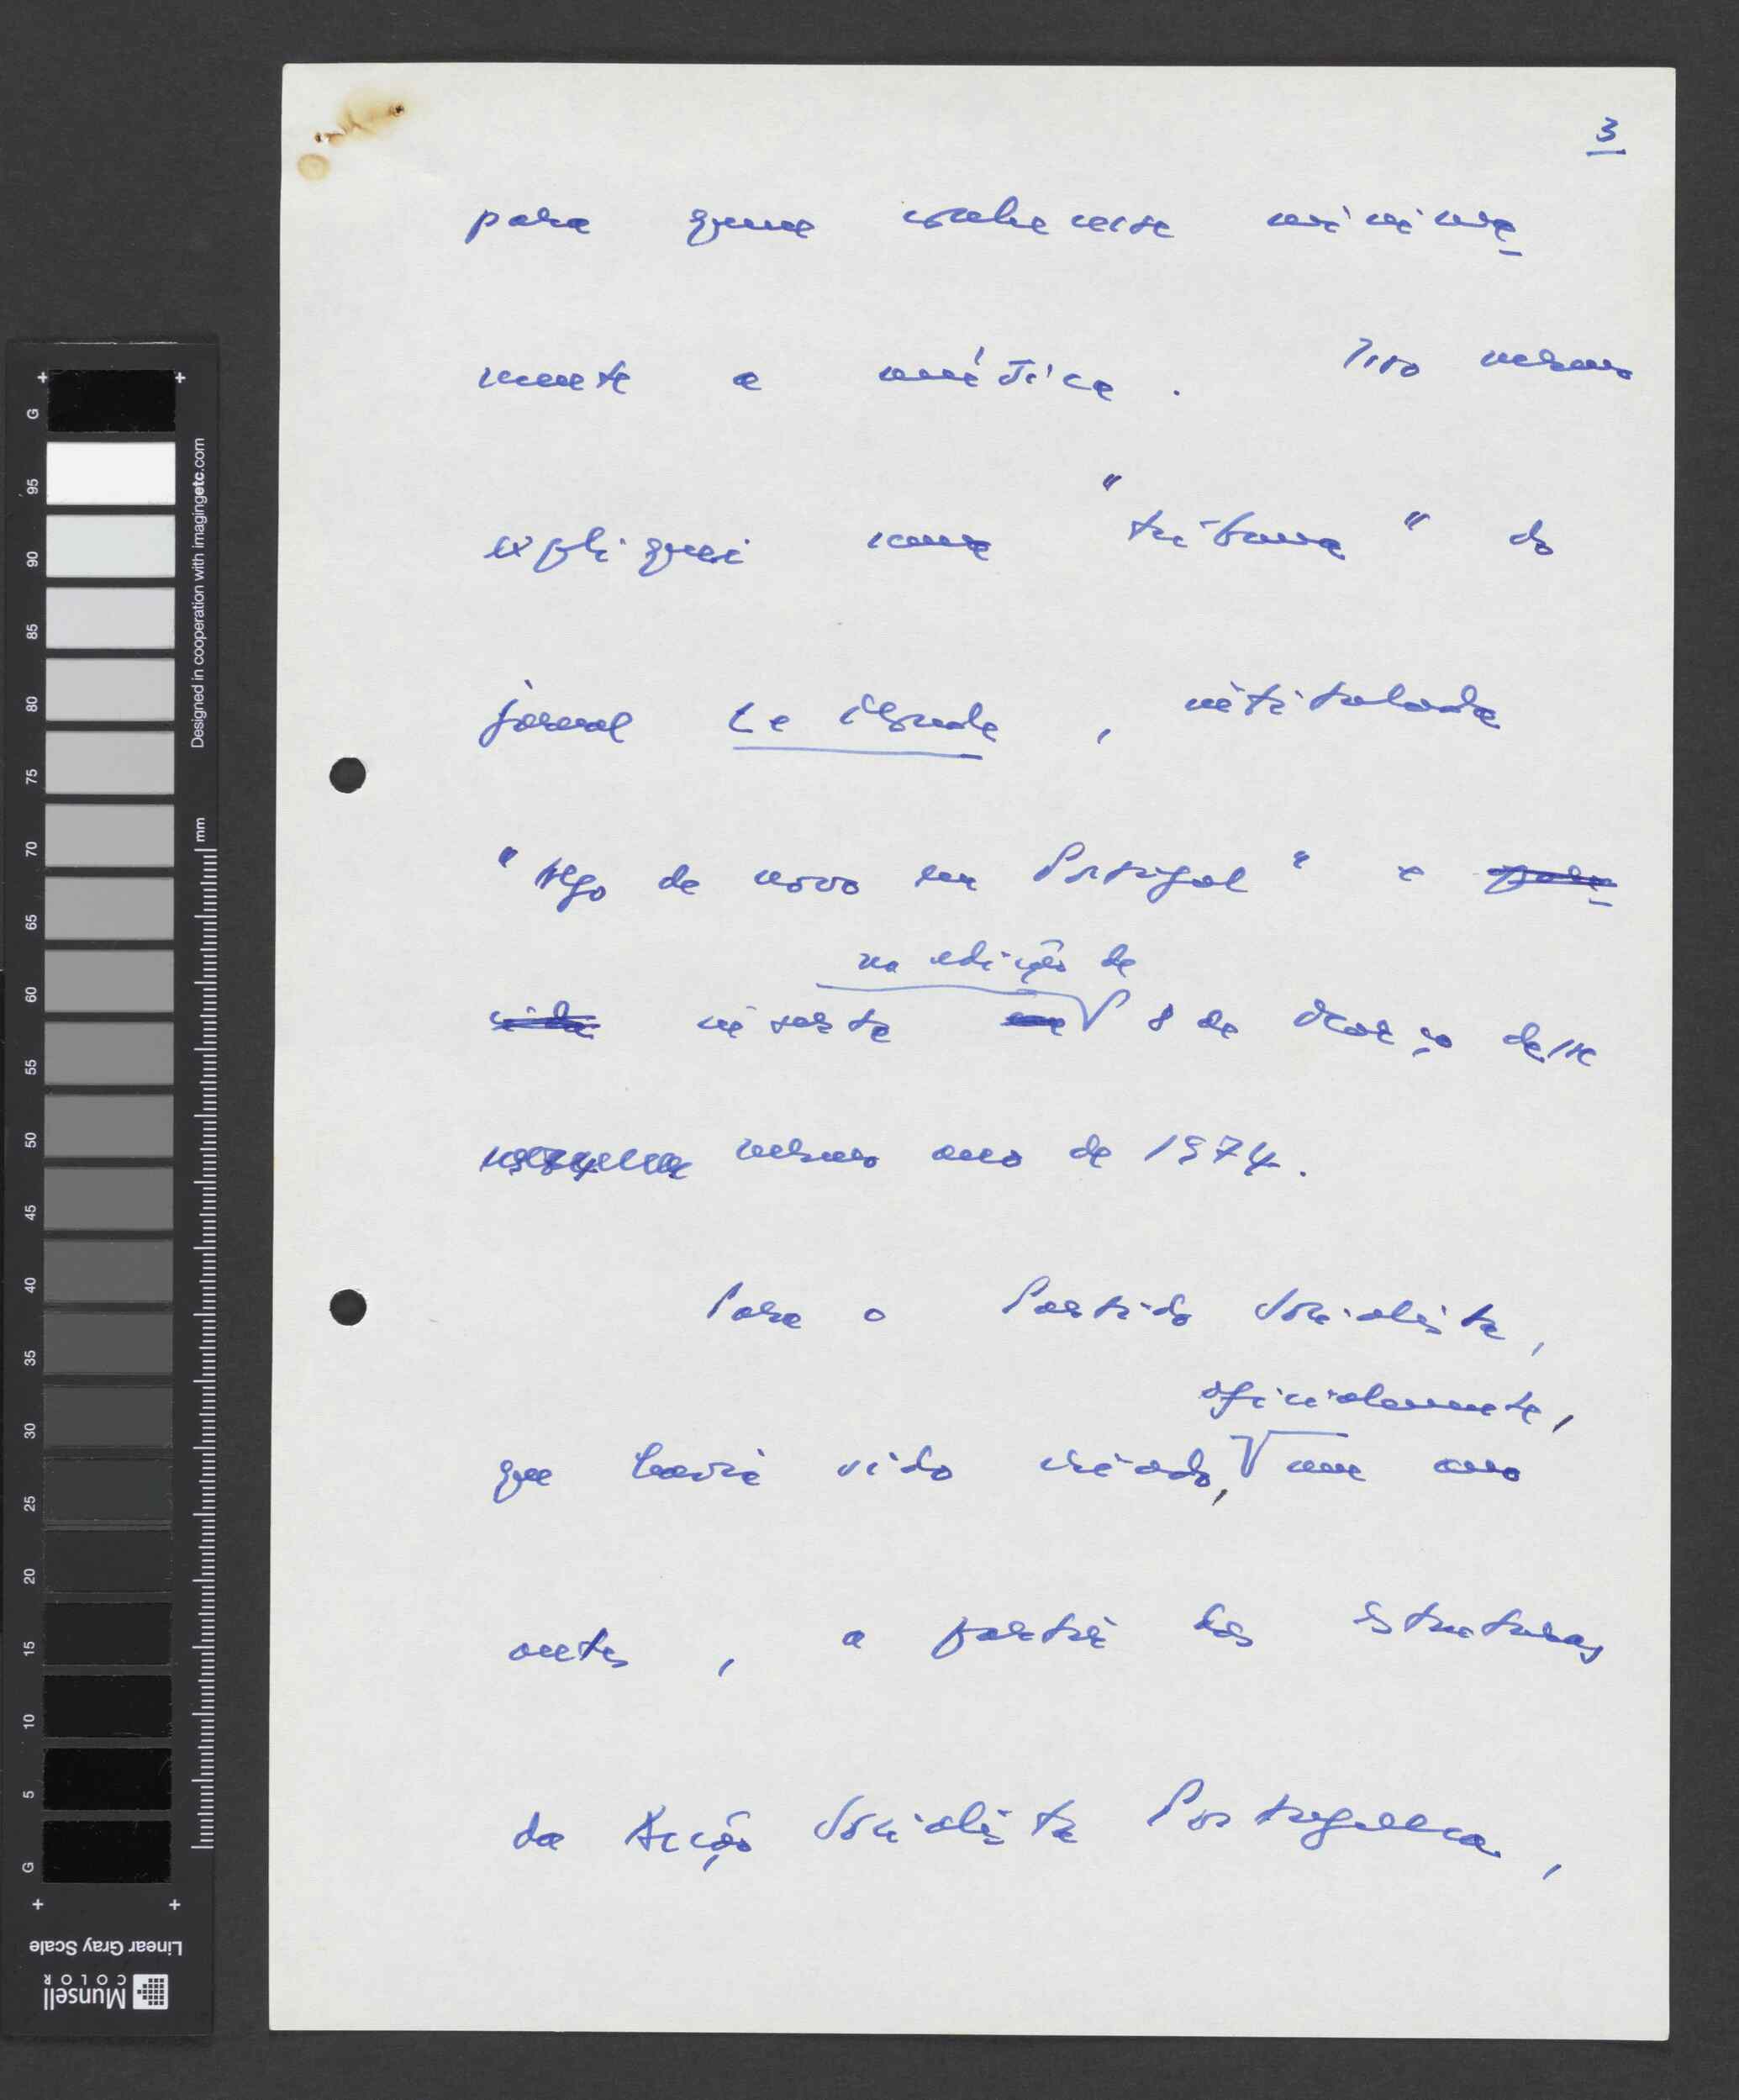 3
para quem conhecesse minima-
mente a política. Isso mesmo
expliquei numa "tribuna" do
jornal Le Monde, intitulada
"Algo de novo em Portugal" e
na edição de
inserta 8 de Março desse
mesmo ano de 1974.
Para o Partido Socialista,
oficialmente,
que havia sido criado, um ano
antes, a partir das estruturas
da Acção Socialista Portuguesa,
G
95
90
85
80
75
70
65
60
55
50
45
40
35
30
25
20
15
10
5
G
Designed in cooperation with imagingetc.com
mm
Linear Gray Scale
Munsell
COLOR